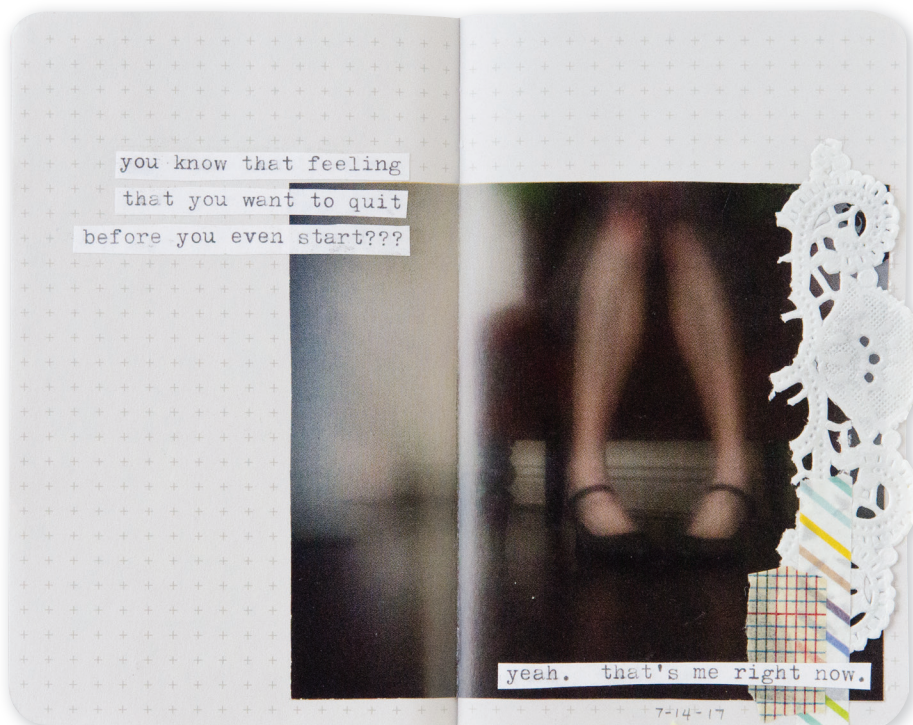 you know that feeling
that you want to quit
before you even start???
yeah. that's me right now.
7-14-17